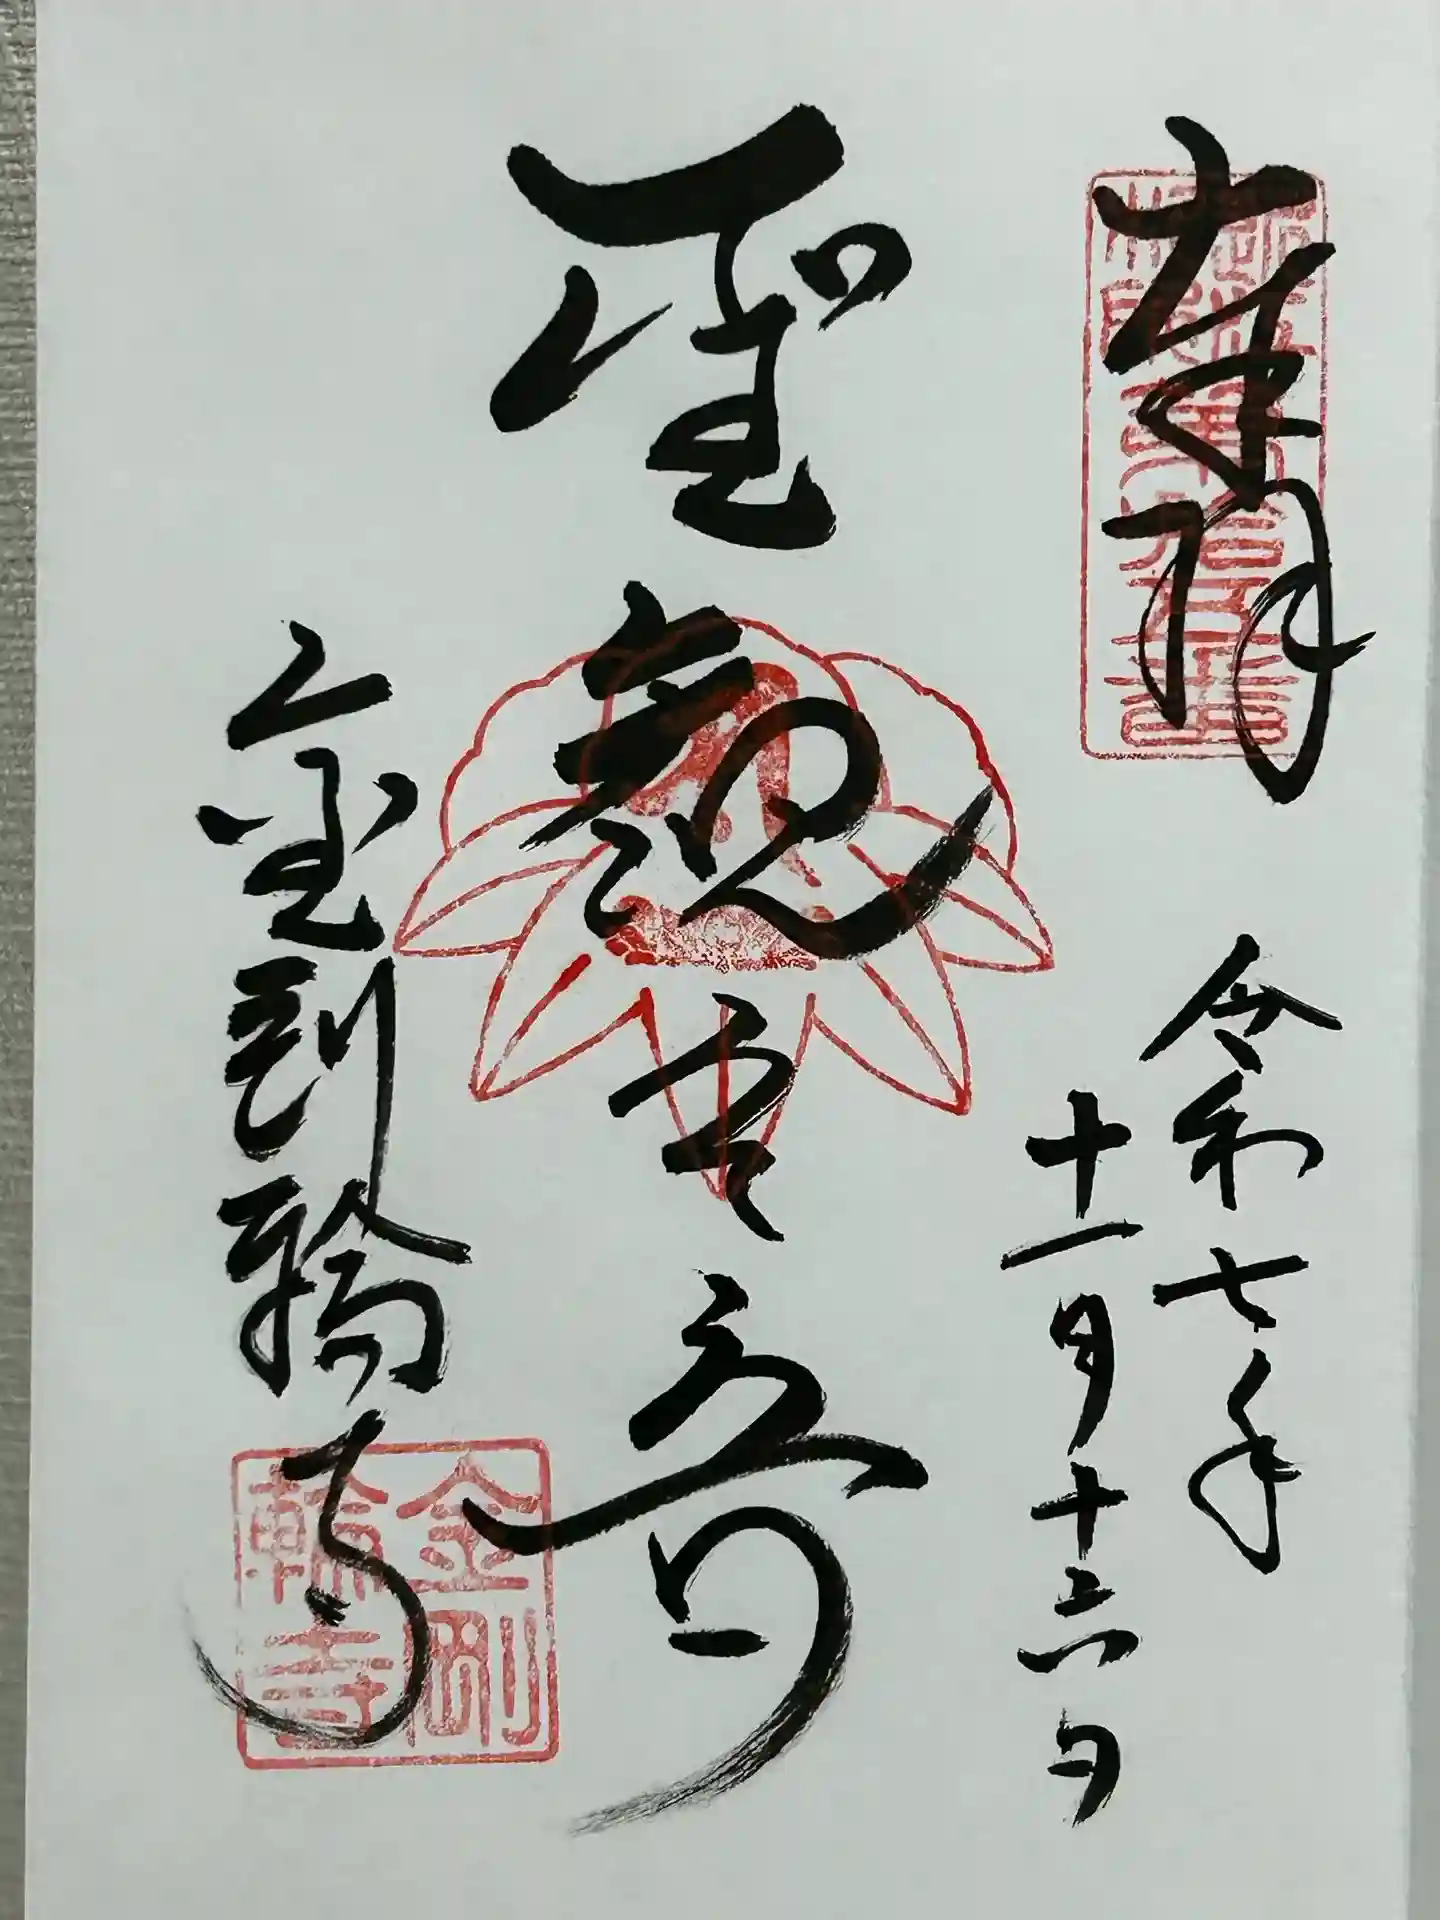 奉拝
令和七年
十一月十六日
聖観世音
金剛輪寺
金剛
輪寺